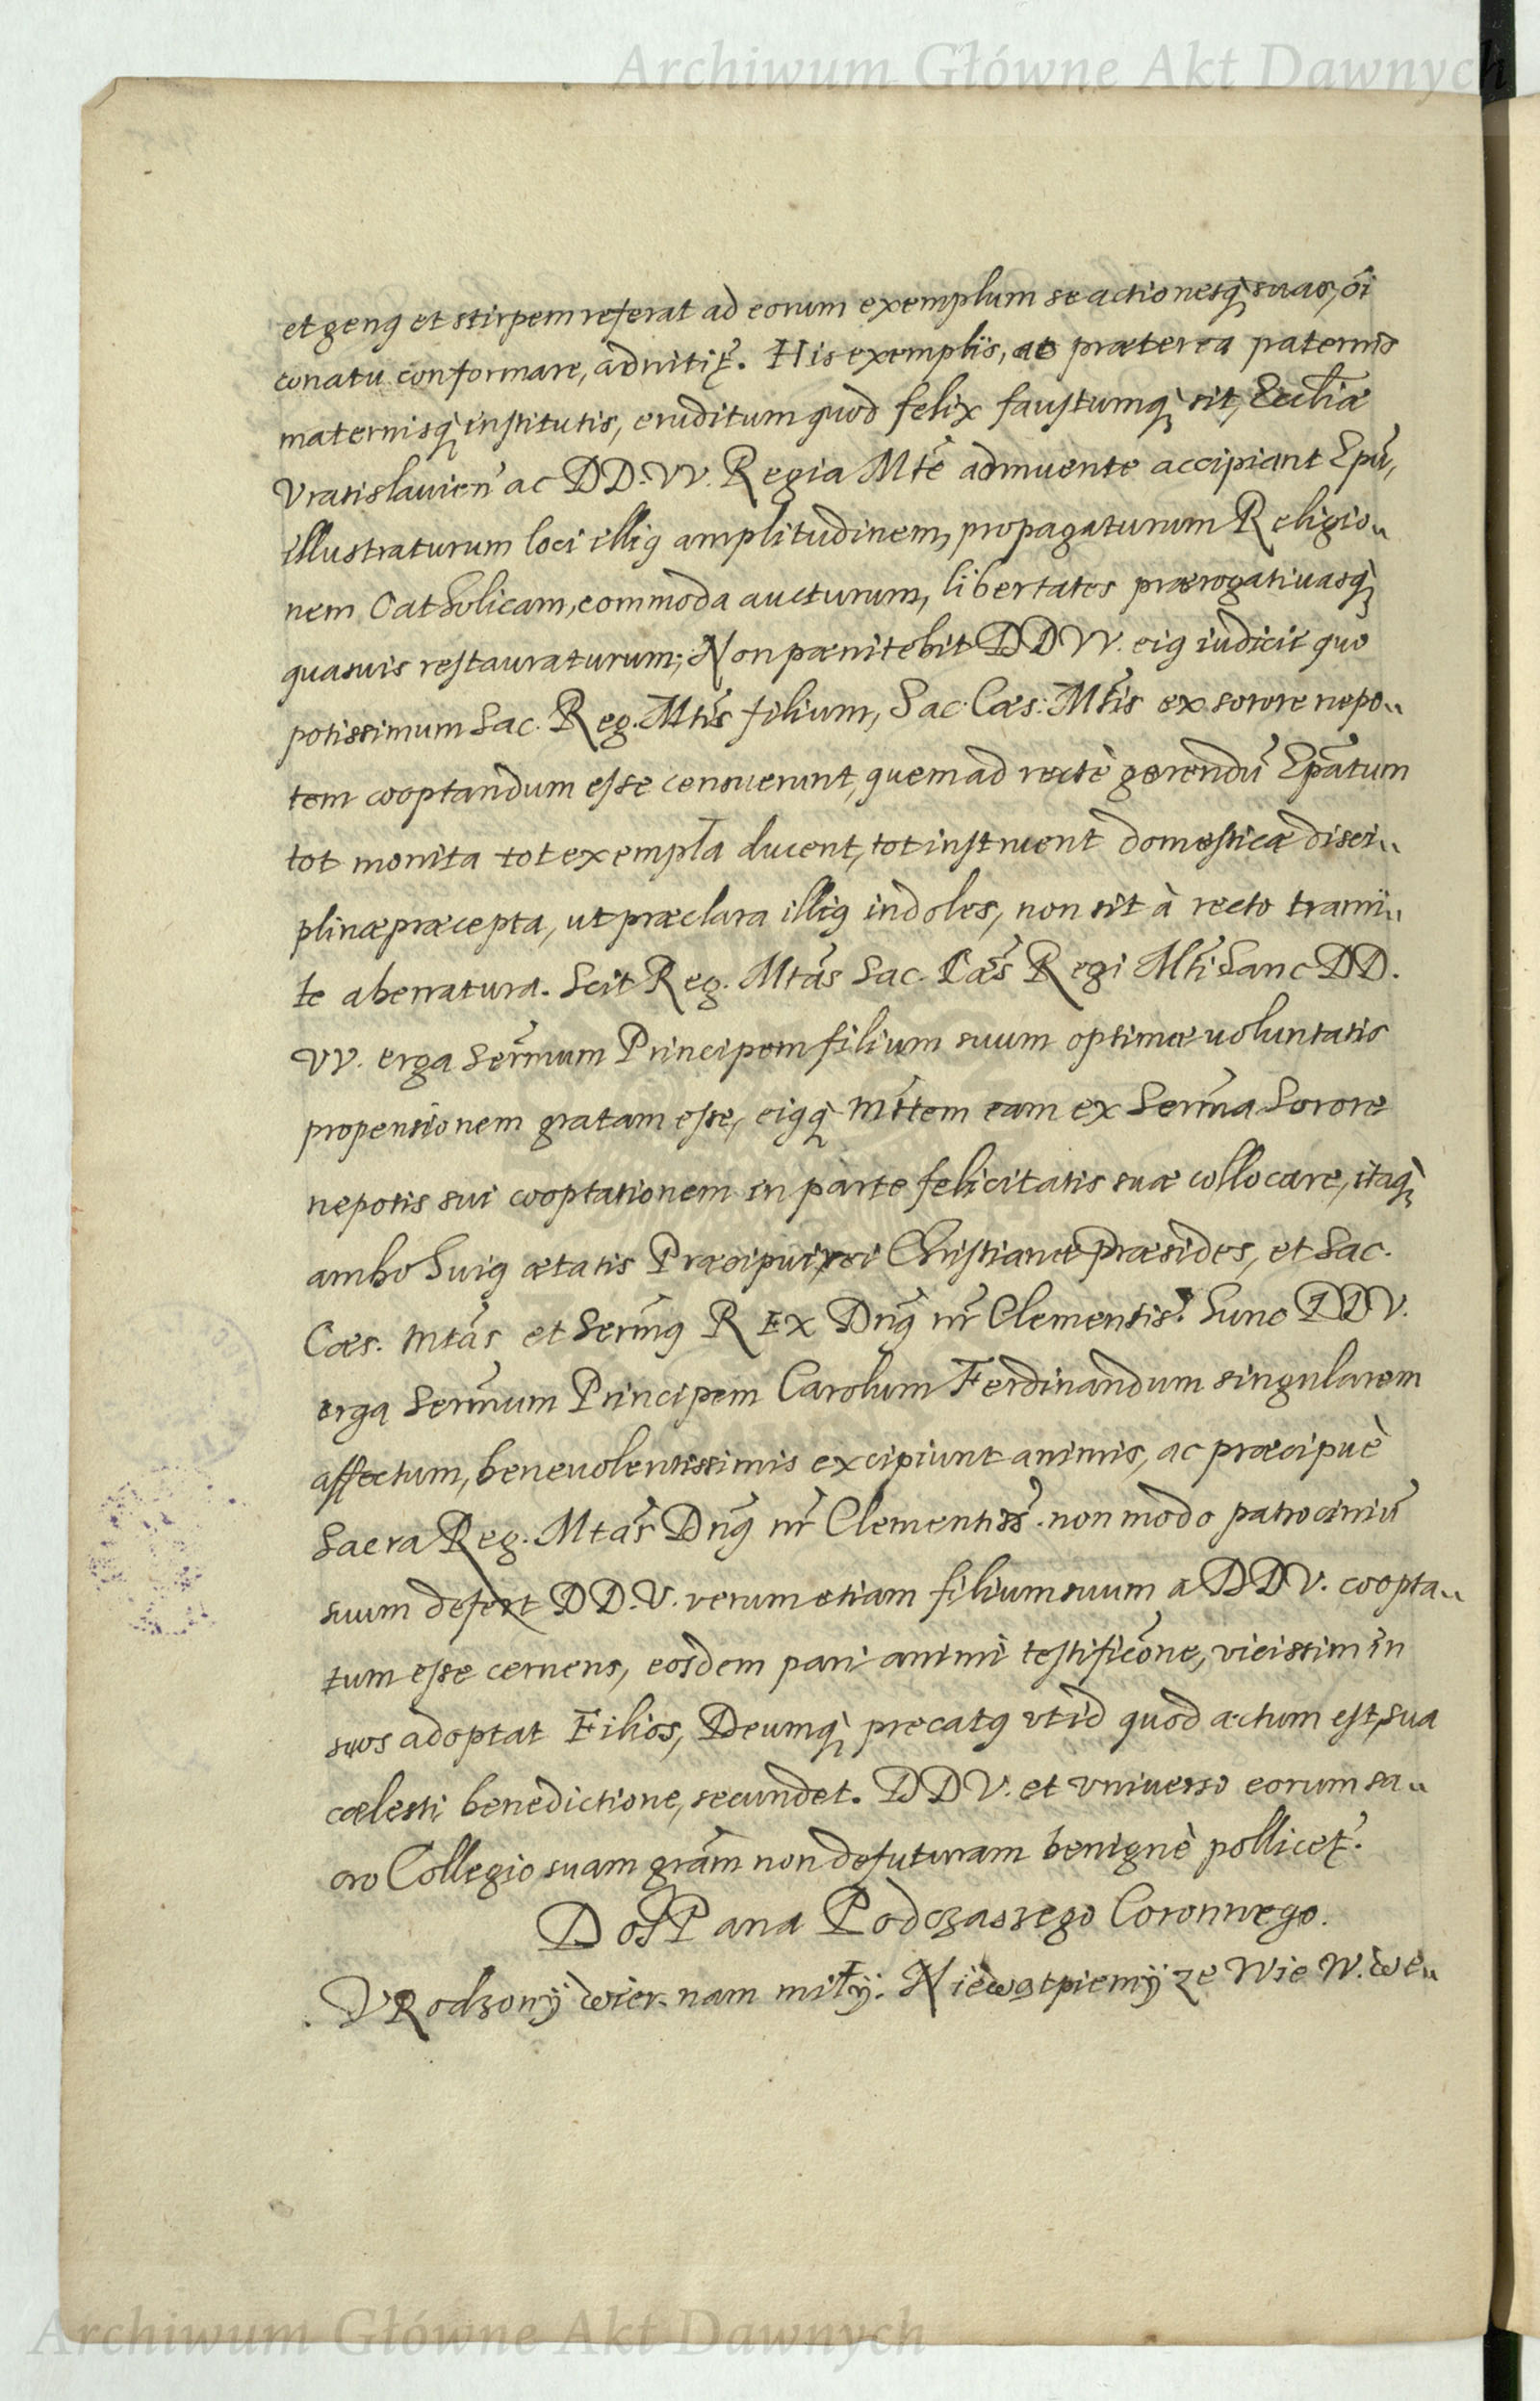 Archiwum Główne Akt Dawnych
et genꝰ et stirpem referat ad eorum exemplum se actionesq̀ suas, oĩ
conatu conformare, adnitit̃. His exemplis, ac præterea paternis
maternisq̀ institutis, eruditum quod felix faustumq̀ sit, Eccl̃iæ
Vratislauien̄ ac DD. VV. Regia Mt̃e admuente accipiant Ep̃ū,
illustraturum loci illiꝰ amplitudinem, propagaturum Religio„
nem Catholicam, commoda aucturum, libertates prærogatiuasq̀
quasuis restauraturum; Non pænitebit DD VV. eiꝰ iudicii quo
potissimum Sac. Reg. Mt̃is filium, Sac. Cæs: Mt̃is ex sorore nepo„
tem cooptandum esse censuerunt, quem ad rectè gerendū Ep̃atum
tot monita tot exempla ducent, tot instruent domesticæ disci„
plinæ præcepta, ut præclara illiꝰ indoles, non sit à recto trami„
te aberratura. Scit Reg. Mt̃as Sac. Cæs̃ Regi Mt̃i hanc DD.
VV. erga Serm̃um Principem filium suum optimæ voluntatis
propensionem gratam esse, eiꝰq̀ Mt̃tem eam ex Serm̃a Sorore
nepotis sui cooptationem in parte felicitatis suæ collocare, itaq̀
ambo huiꝰ ætatis Præcipui rei Christianæ Præsides, et Sac.
Cæs. Mt̃as et Serm̃ꝰ REx Dn̄ꝰ nr̄ Clementis̃. hunc DD V.
erga Serm̃um Principem Carolum Ferdinandum singularem
affectum, beneuolentissimis excipiunt animis, ac præcipuè
Sacra Reg. Mt̃as Dn̄ꝰ nr̄ Clementiss̃. non modo patrociniū
suum defert DD. V. verum etiam filium suum a DD V. coopta„
tum esse cernens, eosdem pari animi testific̃one, vicissim in
suos adoptat Filios, Deumq̀ precatꝰ vt id quod actum est, sua
cælesti benedictione, secundet. DD V. et vniuerso eorum sa„
cro Collegio suam grãm non defuturam benignè pollicet̃.
Do JP ana Podczaszego Coronnego.
VRodzonÿ wier. nam miłÿ. Niewątpiemÿ ze Wie W. we„
Archiwum Główne Akt Dawnych